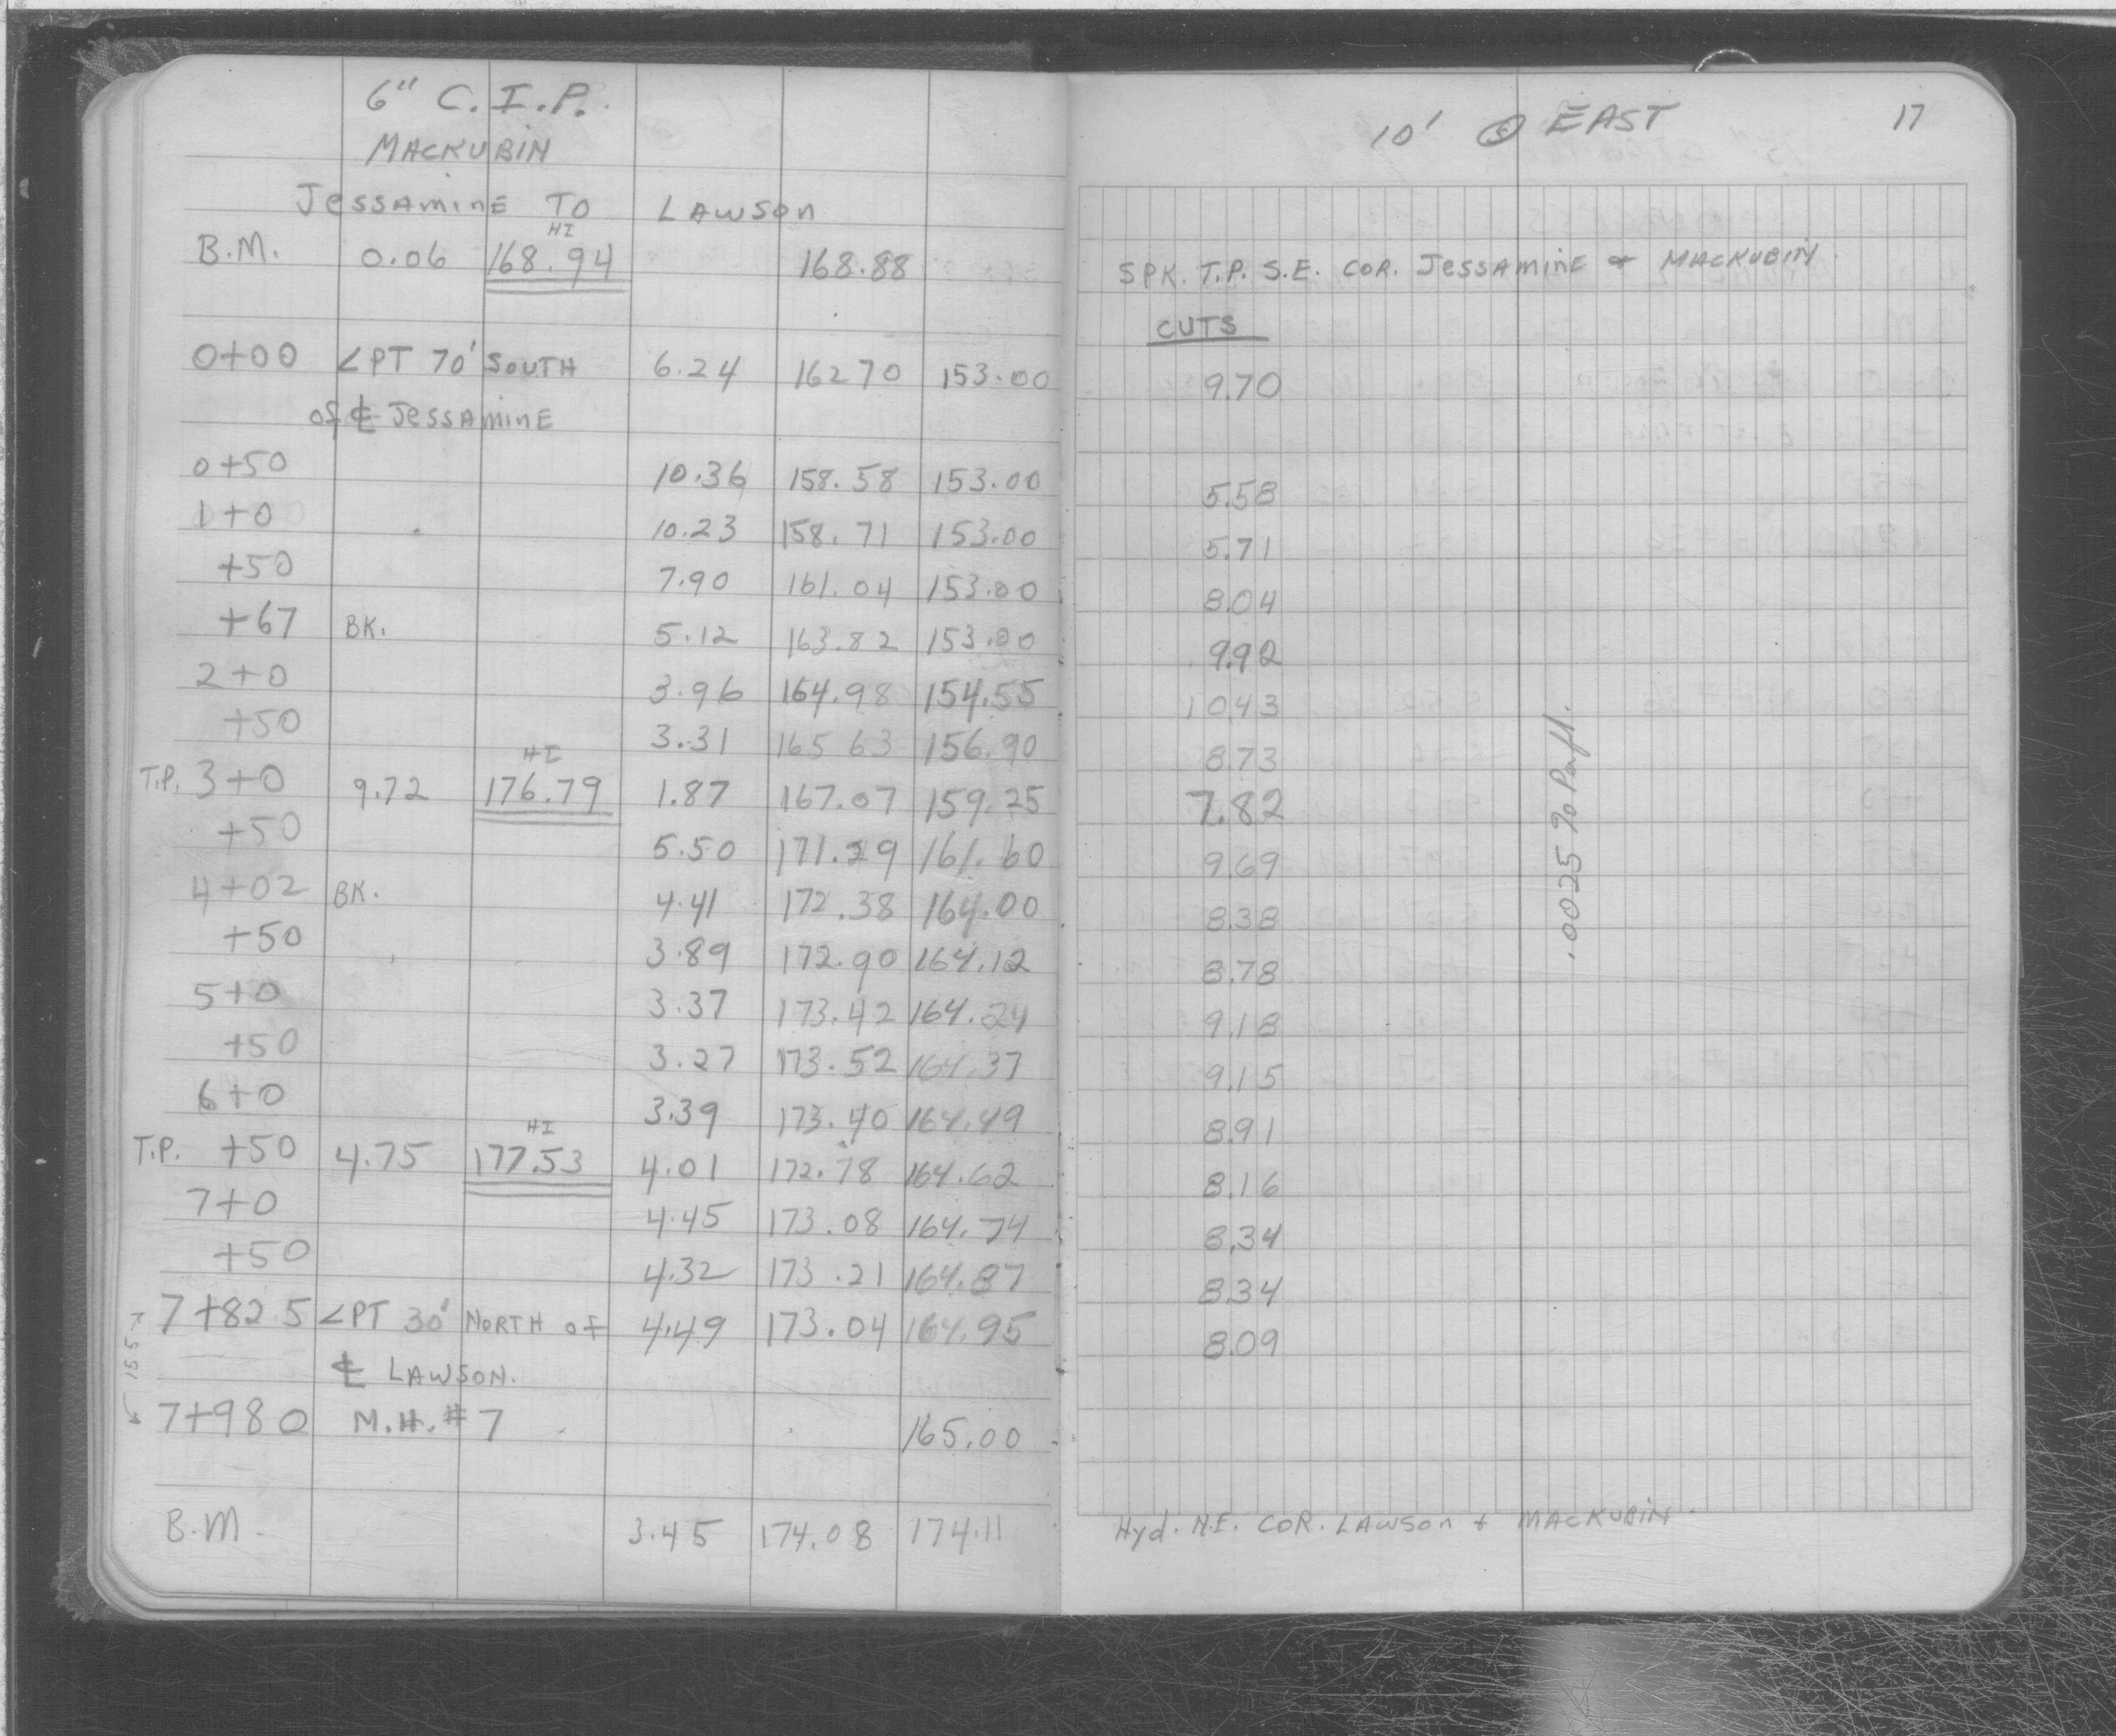 6" C.I.P.
MACKUBIN
JESSAMINE TO LAWSON
HI
B.M. 0.06 168.94 168.88
0+00 ∠PT 70' SOUTH 6.24 162 70 153.00
of ℄ JESSAMINE
0+50 10.36 158.58 153.00
1+0 10.23 158.71 153.00
+50 7.90 161.04 153.00
+67 BK. 5.12 163.82 153.00
2+0 3.96 164.98 154.55
+50 3.31 165 63 156.90
HI
T.P. 3+0 9.72 176.79 1.87 167.07 159.25
+50 5.50 171.29 161.60
4+02 BK. 4.41 172.38 164.00
+50 3.89 172.90 164.12
5+0 3.37 173.42 164.24
+50 3.27 173.52 164.37
6+0 3.39 173.40 164.49
HI
T.P. +50 4.75 177.53 4.01 172.78 164.62
7+0 4.45 173.08 164.74
+50 4.32 173.21 164.87
7+82.5 ∠PT 30' NORTH OF 4.49 173.04 164.95
℄ LAWSON.
15.5
7+98 0 M.H. #7 165.00
B.M. 3.45 174.08 174.11
10' EAST
17
SPK. T.P. S.E. COR. JESSAMINE + MACKUBIN
CUTS
9.70
5.58
5.71
8.04
9.92
10 43
8.73
7.82
9.69
8.38
8.78
9.18
9.15
8.91
8.16
8.34
8.34
8.09
.0025 %
Hyd. N.E. COR. LAWSON + MACKUBIN.